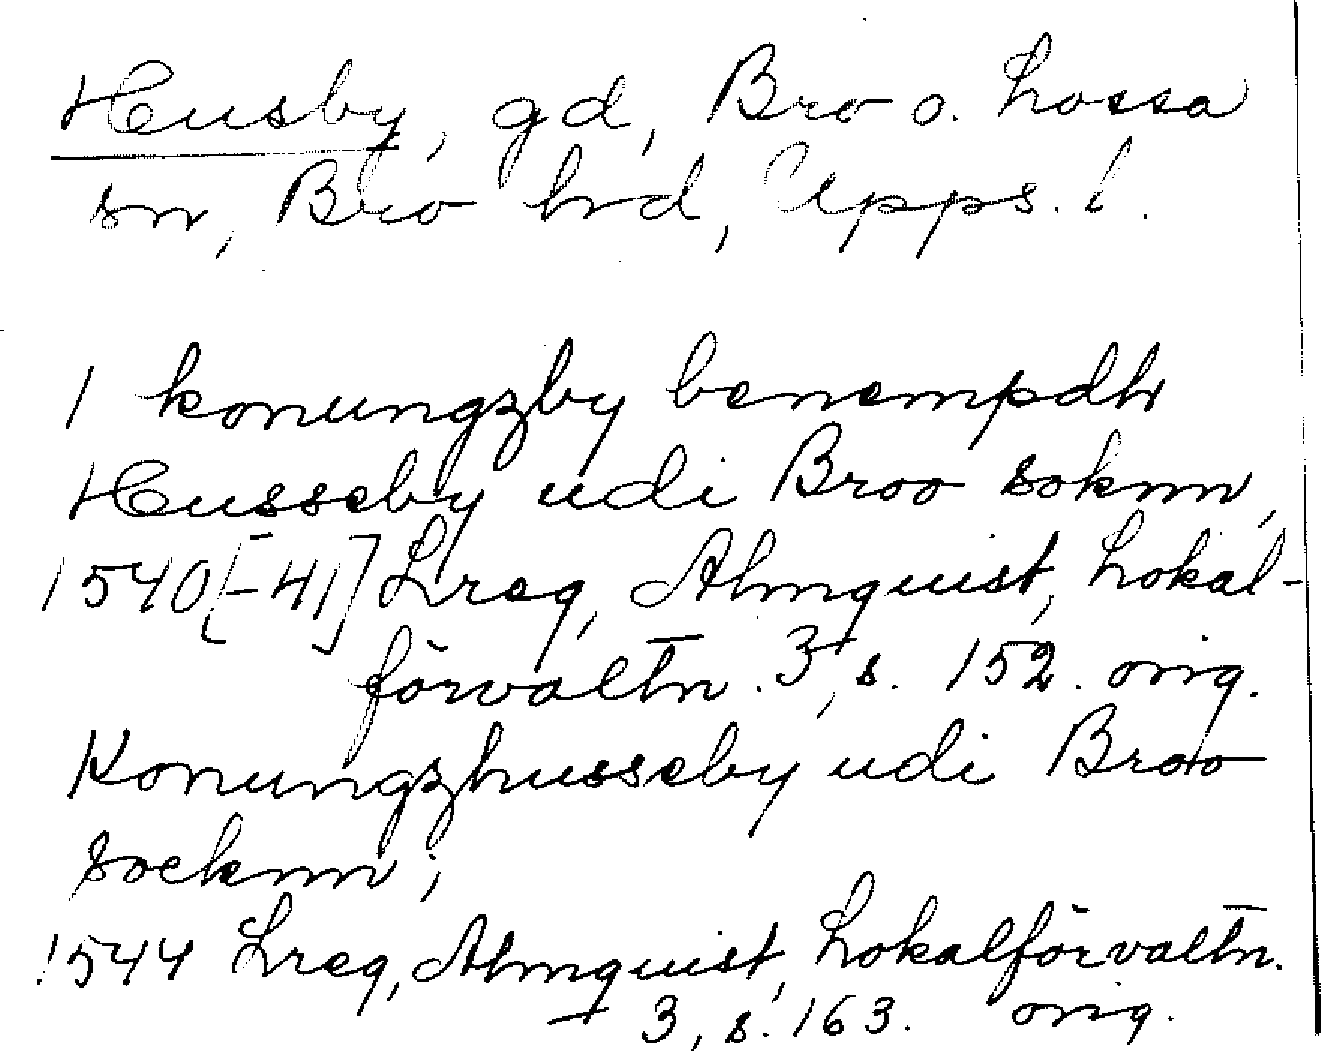 Husby, gd, Bro o. Lossa
sn, Bro hrd, Upps. l.
1 konungzby benempdh
Husseby udi Broo soknn,
1540[-41] Lreg, Almquist, Lokal-
förvaltn. 3, s. 152. orig.
Konungzhusseby udi Broo
socknn;
1544 Lreg, Almquist, Lokalförvaltn.
3, s. 163. orig.